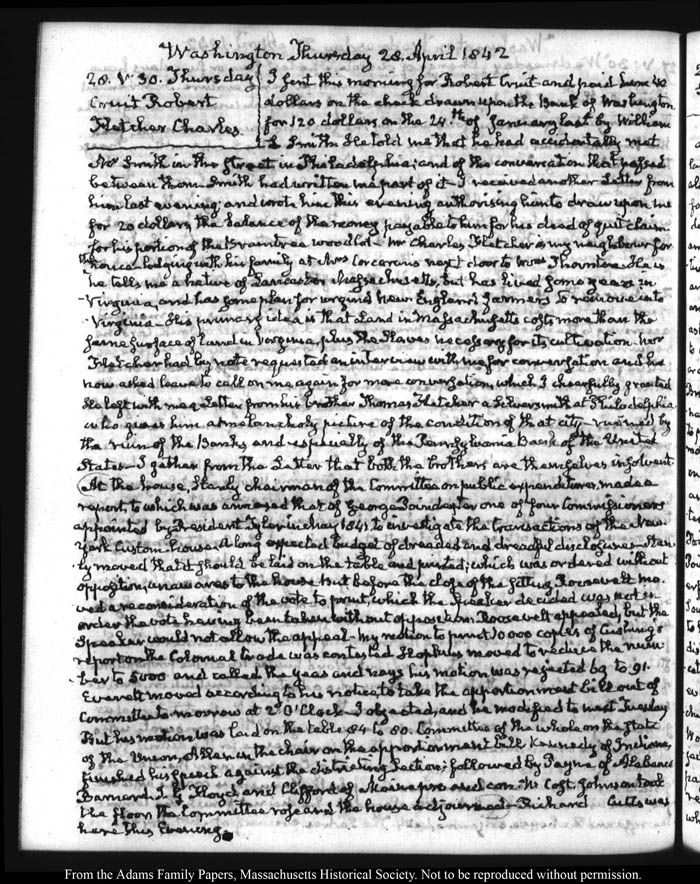 Washington Thursday 28. April 1842
28. V:30. Thursday
Cruit Robert
Fletcher Charles
I sent this morning for Robert Cruit and paid him 40
dollars on the check drawn upon the Bank of Washington
for 120 dollars on the 24.th of January last by William
S. Smith. He told me that he had accidentally met
Mr Smith in the street in Philadelphia; and of the conversation that passed
between them. Smith had written me part of it—I received another Letter from
him last evening; and wrote him this evening authorising him to draw upon me
for 20 dollars, the balance of the money payable to him for his deed of quit claim
for his portion of the Braintree wood lot. Mr Charles Fletcher is my neighbour for
once lodging with his family at Mrs Corcoran's next door to Mrs Thornton. He is
he tells me a native of Lancaster Massachusetts, but has lived some years in
Virginia, and has some plan for urging New England farmers to remove into
Virginia—His primary idea is that Land in Massachusetts costs more than the
same surface of Land in Virginia, plus the Slaves necessary for its cultivation. Mr
Fletcher had by note requested an interview with me for conversation and he
now asked leave to call on me again for more conversation, which I chearfully granted
He left with me a Letter from his brother Thomas Fletcher a Silversmith at Philadelphia
who gives him a melancholy picture of the condition of that city ruined by
the ruin of the Banks and especially of the Pennsylvania Bank of the United
States—I gather from the Letter that both the brothers are themselves insolvent.
At the house, Stanly chairman of the Committee on public expenditures, made a
report, to which was annexed that of George Poindexter one of four Commissioners
appointed by President Tyler in May 1841 to investigate the transactions of the New-
York Custom house. A long expected budget of dreaded and dreadful disclosures—Stan-
ly moved that it should be laid on the table and printed; which was ordered without
opposition, unawares to the house. But before the close of the sitting Roosevelt mo-
ved a reconsideration of the vote to print, which the Speaker decided was not in
order the vote having been taken without opposition. Roosevelt appealed, but the
Speaker would not allow the appeal—My motion to print 10000 copies of Cushing's
report on the Colonial trade was contested. Hopkins moved to reduce the num-
ber to 5000 and called the yeas and nays his motion was rejected 69 to 91.
Everett moved according to his notice to take the apportionment bill out of
Committee to-morrow at 2 O'Clock—I objected, and he modified to next Tuesday
But his motion was laid on the table 84 to 60. Committee of the whole on the State
of the Union, Allen in the chair on the apportionment bill Kennedy of Indiana,
finished his speech against the districting Section; followed by Payne of Alabama
Barnard, J. G. Floyd and Clifford of Maine pro and con. W. Cost Johnson took
the floor, the Committee rose and the house adjourned—Richard Cutts was
here this Evening.
From the Adams Family Papers, Massachusetts Historical Society. Not to be reproduced without permission.